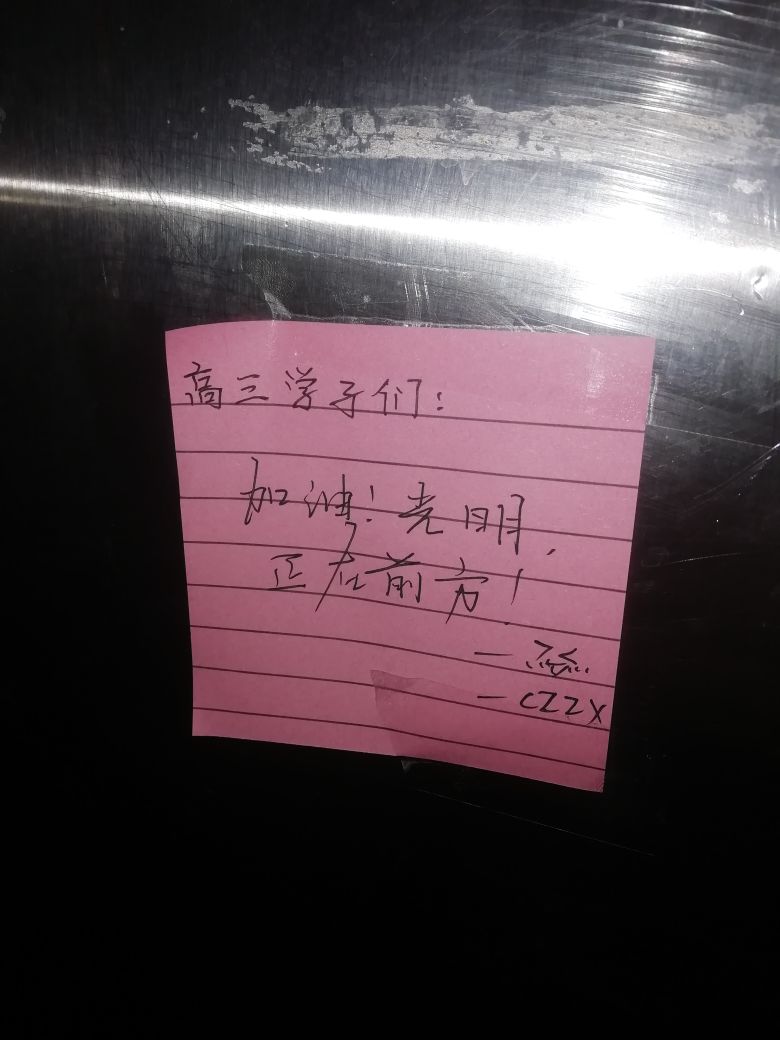 高三学子们：
加油！光明，
正在前方！
—CZZX